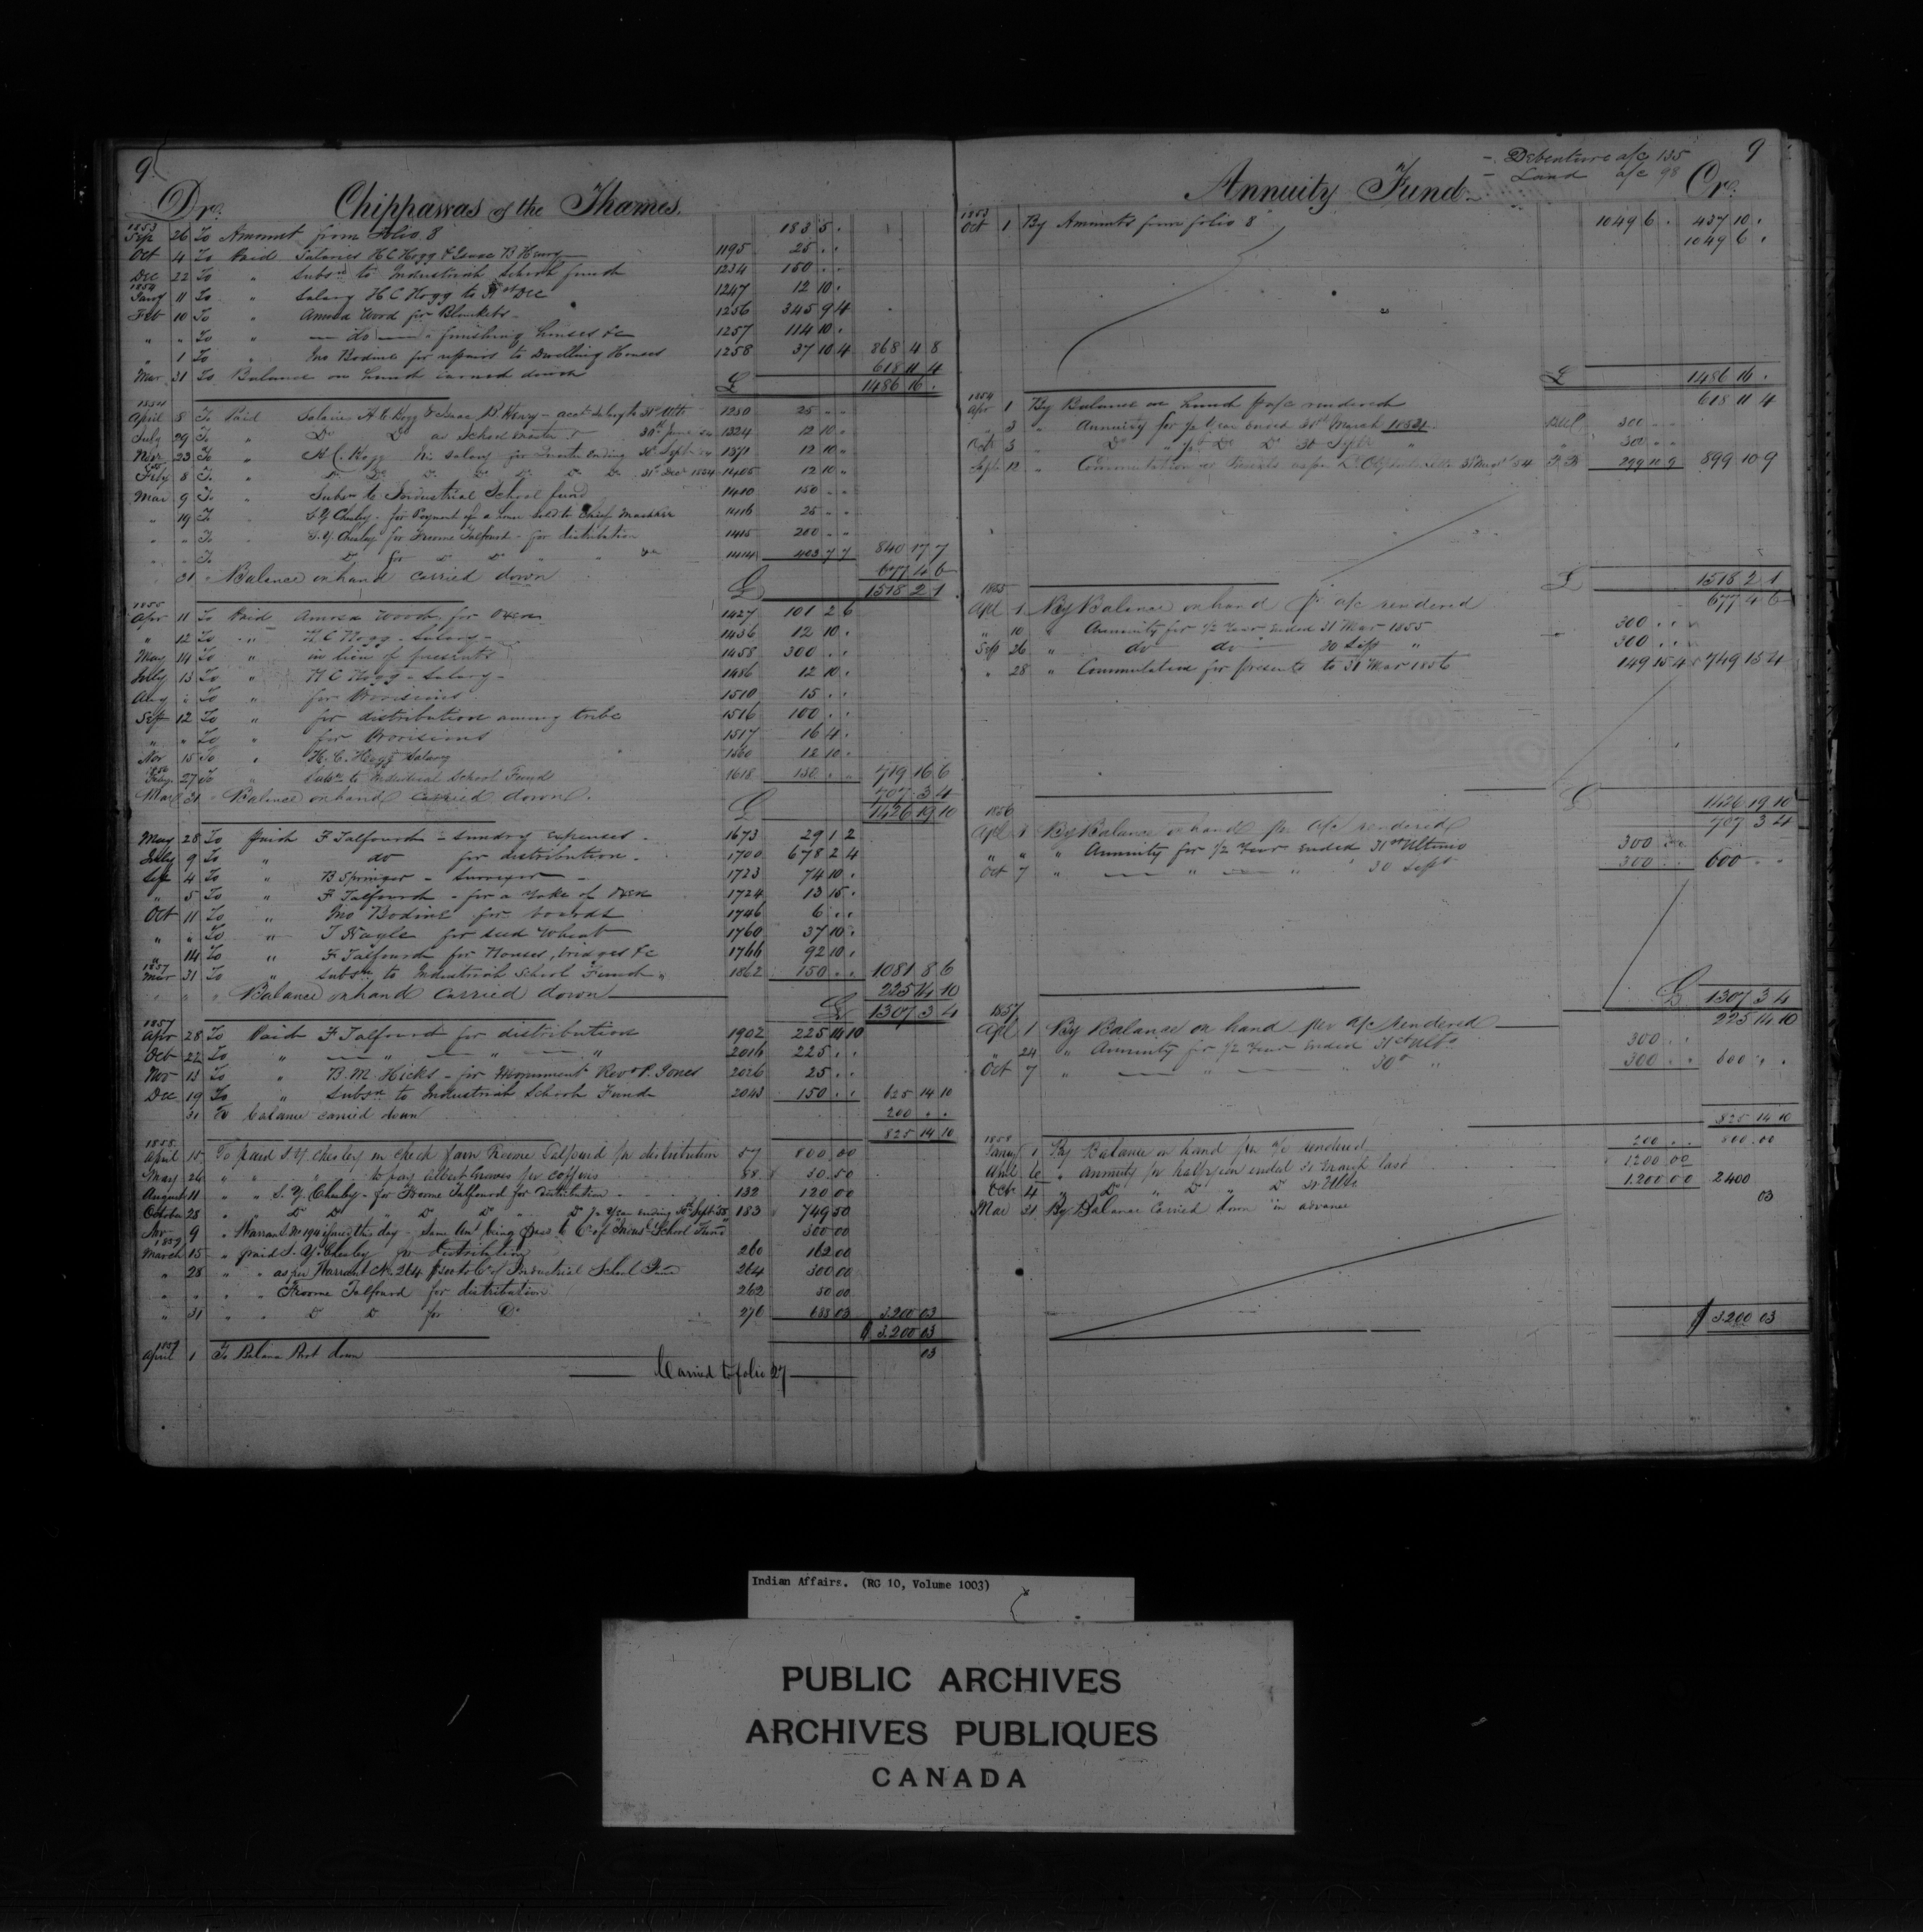 9
Dr. Chippawas of the Thames.
1853
Sep 26 To Amount from Folio 8 183 5 "
Oct 4 To Paid Salaries H C Hogg & Isaac B Henry 1195 25 " "
Dec 22 To " Subsn to Industrial School fund 1234 150 " "
1854
Jany 11 To " Salary H C Hogg to 31st Dec 1247 12 10 "
Feb 10 To " Amosa Wood for Blankets 1256 345 9 4
" " To " do finishing houses &c 1257 114 10 "
" 1 To " Jno Bodine for repairs to Dwelling Houses 1258 37 10 4 868 4 8
Mar 31 To Balance on hand carried down 618 11 4
£ 1486 16 "
1854
April 8 To Paid Salaries H C Hogg & Isaac B Henry 1280 25 " "
July 29 To " Do Do as School master 30th June 54 1324 12 10 "
Nov 23 To " H C Hogg his salary for Quarter ending 30 Sept 54 1371 12 10 "
Feby 8 To " Do Do Do Do Do Do 31 Dec 1854 1405 12 10 "
Mar 9 To " Subsn to Industrial School fund 1410 150 " "
" 19 To " S Y Chesley for Payment of a house sold to Chief 1416 25 " "
" " To S. Y. Chesley for Froome Talfourd - for distribution 1415 200 " "
" " To Do for Do Do 1414 403 7 7 840 17 7
31 " Balance on hand carried down 677 4 6
£ 1518 2 1
1855
Apr 11 To Paid Amosa Wood for Oxen 1427 101 2 6
" 12 To " H C Hogg - Salary - 1436 12 10 "
May 14 To " in lieu of presents 1458 300 " "
July 13 To " H C Hogg - Salary - 1486 12 10 "
Aug " To " for Provisions 1510 15 " "
Sep 12 To " for distribution among tribe 1516 100 " "
" " To " for Provisions 1517 16 4 "
Nov 15 To " H. C. Hogg Salary 1560 12 10 "
1856
Feby 27 To " Subn to Industrial School Fund 1618 150 " " 719 16 6
Mar 31 " Balance on hand carried down. 707 3 4
£ 1426 19 10
May 28 To paid F Talfourd - sundry expenses - 1673 29 1 2
July 9 To " do for distribution - 1700 678 2 4
Sep 4 To " B Springer - Surveyor - 1723 74 10 "
" 5 To " F Talfourd - for a yoke of Oxen 1724 13 15 "
Oct 11 To " Jno Bodine for boards 1746 6 " "
" " To " J Nayle for seed Wheat 1760 37 10 "
" 14 To " F Talfourd for Houses, bridges &c 1766 92 10 "
1857
Mar 31 To " Subsn to Industrial School Fund " 1862 150 " " 1081 8 6
" " " Balance on hand carried down 225 14 10
£ 1307 3 4
1857
Apr 28 To Paid F Talfourd for distribution 1902 225 14 10
Oct 22 To " " " " 2016 225 " "
Nov 13 To " B. M. Hicks - for Monument Revd P. Jones 2026 25 " "
Dec 19 To " Subsn to Industrial School Fund 2043 150 " " 625 14 10
31 To balance carried down 200 " "
825 14 10
1858
April 15 To paid S Y Chesley Froome Talfourd for distribution 57 800 00
May 26 " " " to pay Albert Graves for coffins 88 30 50
August 11 " " S. Y. Chesley - for Froome Talfourd for Distribution 132 120 00
October 28 " " Do Do " Do Do " Do 1/2 Year ending 30th Sept 58 183 749 50
Nov 9 " Warrant No 194 issued this day - same Amt being
 300 00
1859
March 15 " paid S. Y. Chesley for distribution 260 162 00
" 28 " " as per Warrant No. 264 Industrial School Fund 264 300 00
" " " " Froome Talfourd for distribution 262 50 00
" 31 " " Do Do for Do 270 688 03 3200 03
$ 3200 03
1859
April 1 To Balance Brot down 03
Carried to folio 27
Annuity Fund Cr. 9
- Debenture a/c 135
- Land a/c 98
1853
Oct 1 By Amounts from folio 8 1049 6 " 437 10 "
1049 6 "
£ 1486 16 "
1854
Apr 1 By Balance on hand pr a/c rendered 618 11 4
" 3 " Annuity for 1/2 Year ended 31st March 300 " "
Oct 3 " Do " 1/2 Do Do 30 Septr " 300 " "
Sept 12 " Commutation of Presents as per 299 10 9 899 10 9
£ 1518 2 1
1855
Apl 1 By Balance on hand pr a/c rendered 677 4 6
" 10 " Annuity for 1/2 Year ended 31 Mar 1855 300 " "
Sep 26 " do do 30 Sept " 300 " "
" 28 " Commutation for presents to 31 Mar 1856 149 15 4 749 15 4
£ 1426 19 10
1856
Apl 1 By Balance on hand per a/c rendered 707 3 4
" " " Annuity for 1/2 Year ended 31st Ultimo 300 " "
Oct 7 " " " 30 Sept 300 " " 600 " "
£ 1307 3 4
1857
Apl 1 By Balance on hand per a/c rendered 225 14 10
" 24 " Annuity for 1/2 Year ended 31st Ulto 300 " "
Oct 7 " " " 30th " 300 " " 600 " "
825 14 10
1858
Jany 1 By Balance on hand per a/c rendered 200 " " 800 00
April 6 " Annuity for half year ended 31 March last 1200 00
Octr 4 " Do " Do " Do 30 Ulto 1200 00 2400
Mar 31 By Balance Carried down in advance 03
$ 3200 03
Indian Affairs. (RG 10, Volume 1003)
PUBLIC ARCHIVES
ARCHIVES PUBLIQUES
CANADA